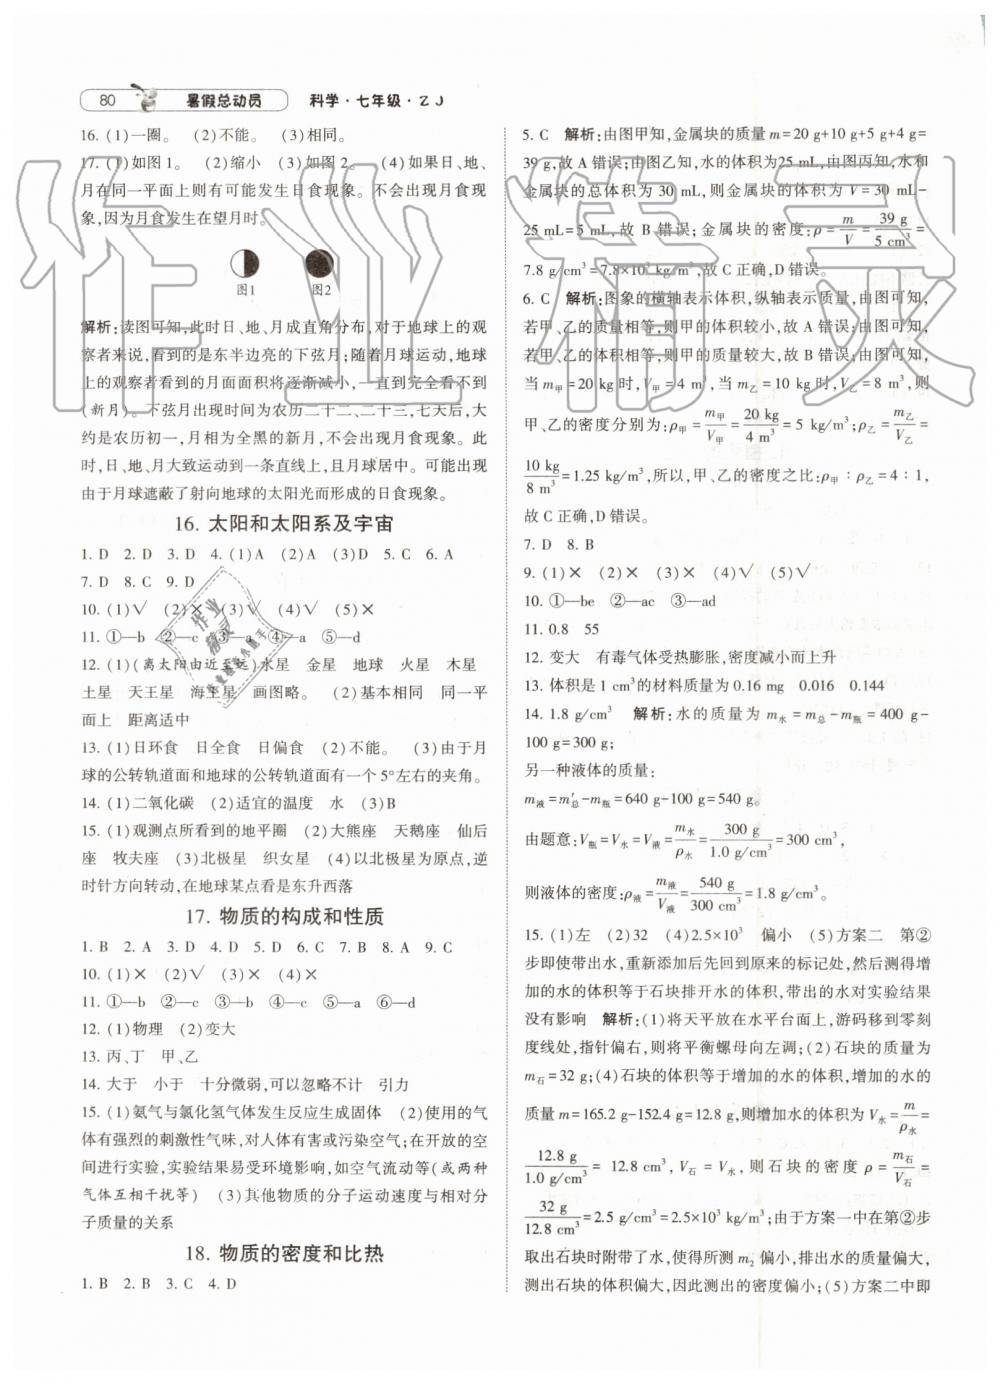 80 暑假总动员 科学·七年级·ZJ
16. (1)一圈。 (2)不能。 (3)相同。
17. (1)如图1。 (2)缩小 (3)如图2。 (4)如果日、地、
月在同一平面上则有可能发生日食现象。不会出现月食现
象,因为月食发生在望月时。
图1 图2
解析:读图可知,此时日、地、月成直角分布,对于地球上的观
察者来说,看到的是东半边亮的下弦月;随着月球运动,地球
上的观察者看到的月面面积将逐渐减小,一直到完全看不到
(新月)。下弦月出现时间为农历二十二、二十三,七天后,大
约是农历初一,月相为全黑的新月,不会出现月食现象。此
时,日、地、月大致运动到一条直线上,且月球居中。可能出现
由于月球遮蔽了射向地球的太阳光而形成的日食现象。
16. 太阳和太阳系及宇宙
1. D 2. D 3. D 4. (1)A (2)A (3)D 5. C 6. A
7. D 8. C 9. D
10. (1)√ (2)× (3)√ (4)√ (5)×
11. ①—b ②—c ③—a ④—a ⑤—d
12. (1)(离太阳由近至远)水星 金星 地球 火星 木星
土星 天王星 海王星 画图略。 (2)基本相同 同一平
面上 距离适中
13. (1)日环食 日全食 日偏食 (2)不能。 (3)由于月
球的公转轨道面和地球的公转轨道面有一个5°左右的夹角。
14. (1)二氧化碳 (2)适宜的温度 水 (3)B
15. (1)观测点所看到的地平圈 (2)大熊座 天鹅座 仙后
座 牧夫座 (3)北极星 织女星 (4)以北极星为原点,逆
时针方向转动,在地球某点看是东升西落
17. 物质的构成和性质
1. B 2. A 3. D 4. D 5. D 6. C 7. B 8. A 9. C
10. (1)× (2)√ (3)× (4)×
11. ①—b ②—c ③—b ④—c ⑤—a ⑥—d
12. (1)物理 (2)变大
13. 丙、丁 甲、乙
14. 大于 小于 十分微弱,可以忽略不计 引力
15. (1)氨气与氯化氢气体发生反应生成固体 (2)使用的气
体有强烈的刺激性气味,对人体有害或污染空气;在开放的空
间进行实验,实验结果易受环境影响,如空气流动等(或两种
气体互相干扰等) (3)其他物质的分子运动速度与相对分
子质量的关系
18. 物质的密度和比热
1. B 2. B 3. C 4. D
5. C 解析:由图甲知,金属块的质量m=20 g+10 g+5 g+4 g=
39 g,故A错误;由图乙知,水的体积为25 mL,由图丙知,水和
金属块的总体积为 30 mL,则金属块的体积为 V=30 mL-
25 mL=5 mL,故 B 错误;金属块的密度:ρ=m/V=39 g/5 cm³=
7.8 g/cm³=7.8×10³ kg/m³,故C正确,D错误。
6. C 解析:图象的横轴表示体积,纵轴表示质量,由图可知,
若甲、乙的质量相等,则甲的体积较小,故 A 错误;由图可知,
若甲、乙的体积相等,则甲的质量较大,故 B 错误;由图可知,
当 m甲=20 kg 时,V甲=4 m³,当 m乙=10 kg 时,V乙=8 m³,则
甲、乙的密度分别为:ρ甲=m甲/V甲=20 kg/4 m³=5 kg/m³;ρ乙=m乙/V乙=
10 kg/8 m³=1.25 kg/m³,所以,甲、乙的密度之比:ρ甲∶ρ乙=4∶1,
故C正确,D错误。
7. D 8. B
9. (1)× (2)× (3)× (4)√ (5)√
10. ①—be ②—ac ③—ad
11. 0.8 55
12. 变大 有毒气体受热膨胀,密度减小而上升
13. 体积是1 cm³的材料质量为0.16 mg 0.016 0.144
14. 1.8 g/cm³ 解析:水的质量为 m水=m总-m瓶=400 g-
100 g=300 g;
另一种液体的质量:
m液=m′总-m瓶=640 g-100 g=540 g。
由题意:V瓶=V水=V液=m水/ρ水=300 g/1.0 g/cm³=300 cm³,
则液体的密度:ρ液=m液/V液=540 g/300 cm³=1.8 g/cm³。
15. (1)左 (2)32 (4)2.5×10³ 偏小 (5)方案二 第②
步即使带出水,重新添加后先回到原来的标记处,然后测得增
加的水的体积等于石块排开水的体积,带出的水对实验结果
没有影响 解析:(1)将天平放在水平台面上,游码移到零刻
度线处,指针偏右,则将平衡螺母向左调;(2)石块的质量为
m石=32 g;(4)石块的体积等于增加的水的体积,增加的水的
质量m=165.2 g-152.4 g=12.8 g,则增加水的体积为V水=m/ρ水=
12.8 g/1.0 g/cm³=12.8 cm³,V石=V水,则石块的密度 ρ=m石/V石=
32 g/12.8 cm³=2.5 g/cm³=2.5×10³ kg/m³;由于方案一中在第②步
取出石块时附带了水,使得所测m₂偏小,排出水的质量偏大,
测出石块的体积偏大,因此测出的密度偏小;(5)方案二中即
作业精灵